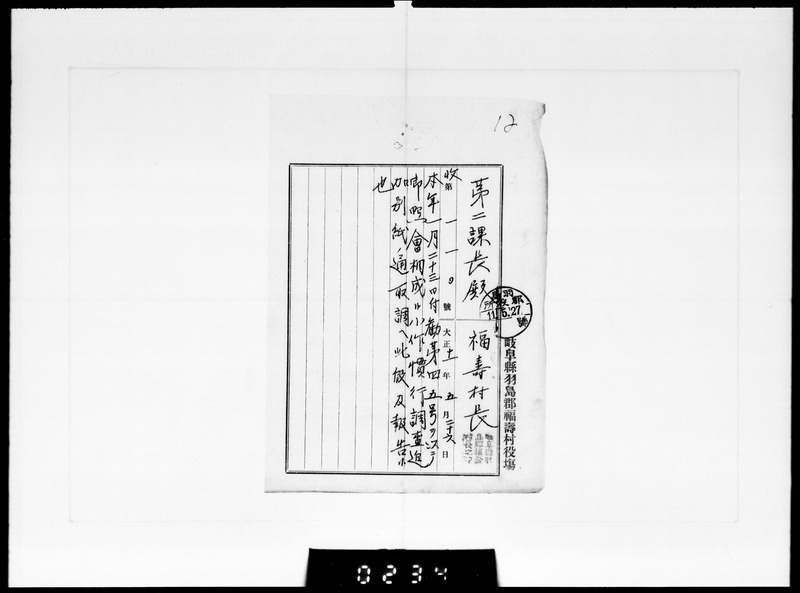 12
岐阜縣羽島郡福壽村役場
第二課長殿 福壽村長
11.5.27
收第一一9號 大正十一年五月二十六日
本年一月二十三日付勸第四五号ヲ以テ
御照會相成小作慣行調査
別紙通取調此段及報告
也
0234